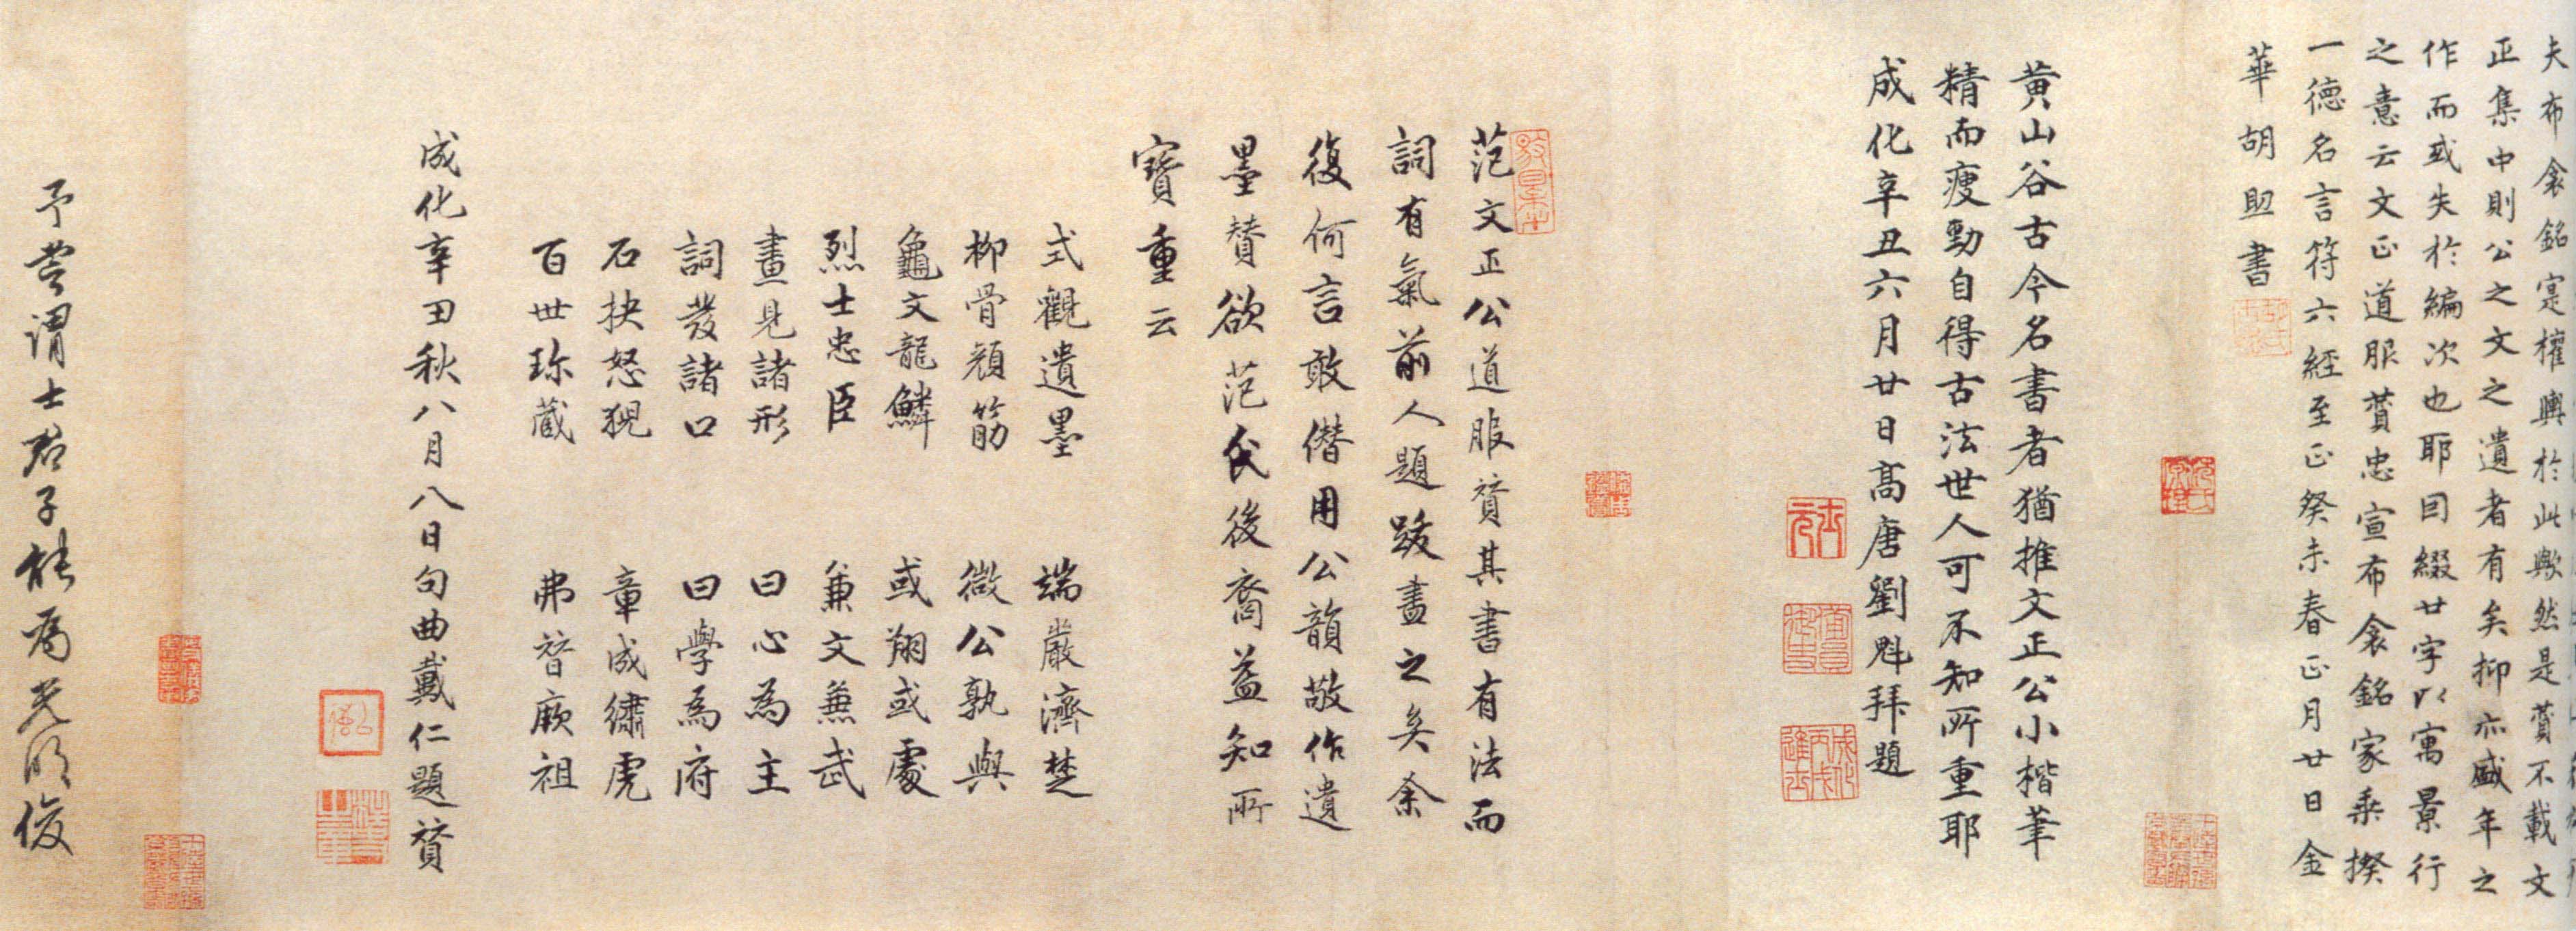 夫布衾銘寔權輿於此歟然是賛不載文
正集中則公之文之遺者有矣抑亦盛年之
作而或失於編次也耶因綴廿字以寓景行
之意云文正道服賛忠宣布衾銘家乘揆
一德名言符六經至正癸未春正月廿日金
華胡助書
黄山谷古今名書者猶推文正公小楷筆
精而瘦勁自得古法世人可不知所重耶
成化辛丑六月廿日高唐劉魁拜題
范文正公道服賛其書有法而
詞有氣前人題跋盡之矣余
復何言敢僣用公韻敬作遺
墨賛欲范氏後裔益知所
寶重云
式觀遺墨 端嚴濟楚
柳骨顔筋 微公孰與
龜文龍鱗 或翔或處
烈士忠臣 兼文兼武
畫見諸形 曰心為主
詞發諸口 曰學為府
石抉怒猊 章成繡虎
百世珎蔵 弗替厥祖
成化辛丑秋八月八日句曲戴仁題賛
予嘗謂士君子能為光明俊